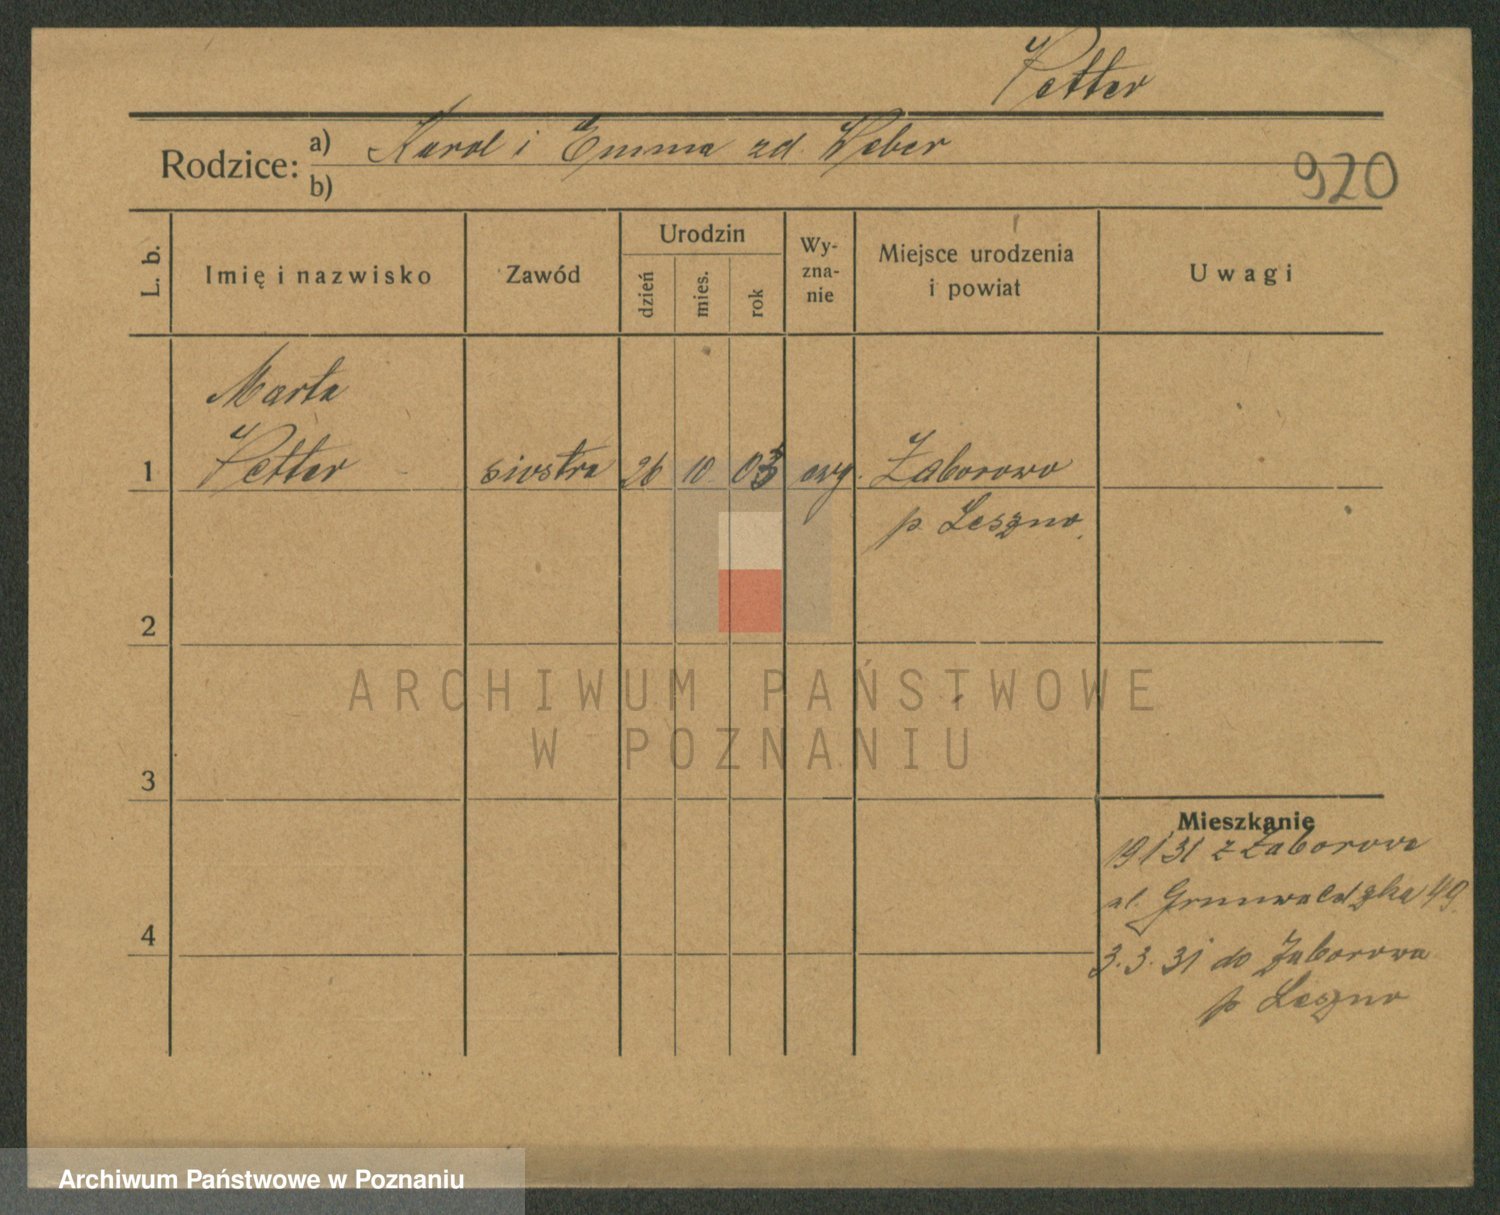 Petter
Rodzice: a) Karol i Emma zd. Weber
b)
920
L. b.
Imię i nazwisko
Zawód
Urodzin
dzień
mies.
rok
Wy-
zna-
nie
Miejsce urodzenia
i powiat
Uwagi
Marta
1 Petter siostra 26 10 03 ewg. Zaborowo
p. Leszno.
2
3
4
Mieszkanie
19/1 31 z Zaborowa
ul. Grunwaldzka 49.
3.3.31 do Zaborowa
p Leszno
ARCHIWUM PAŃSTWOWE
W POZNANIU
Archiwum Państwowe w Poznaniu